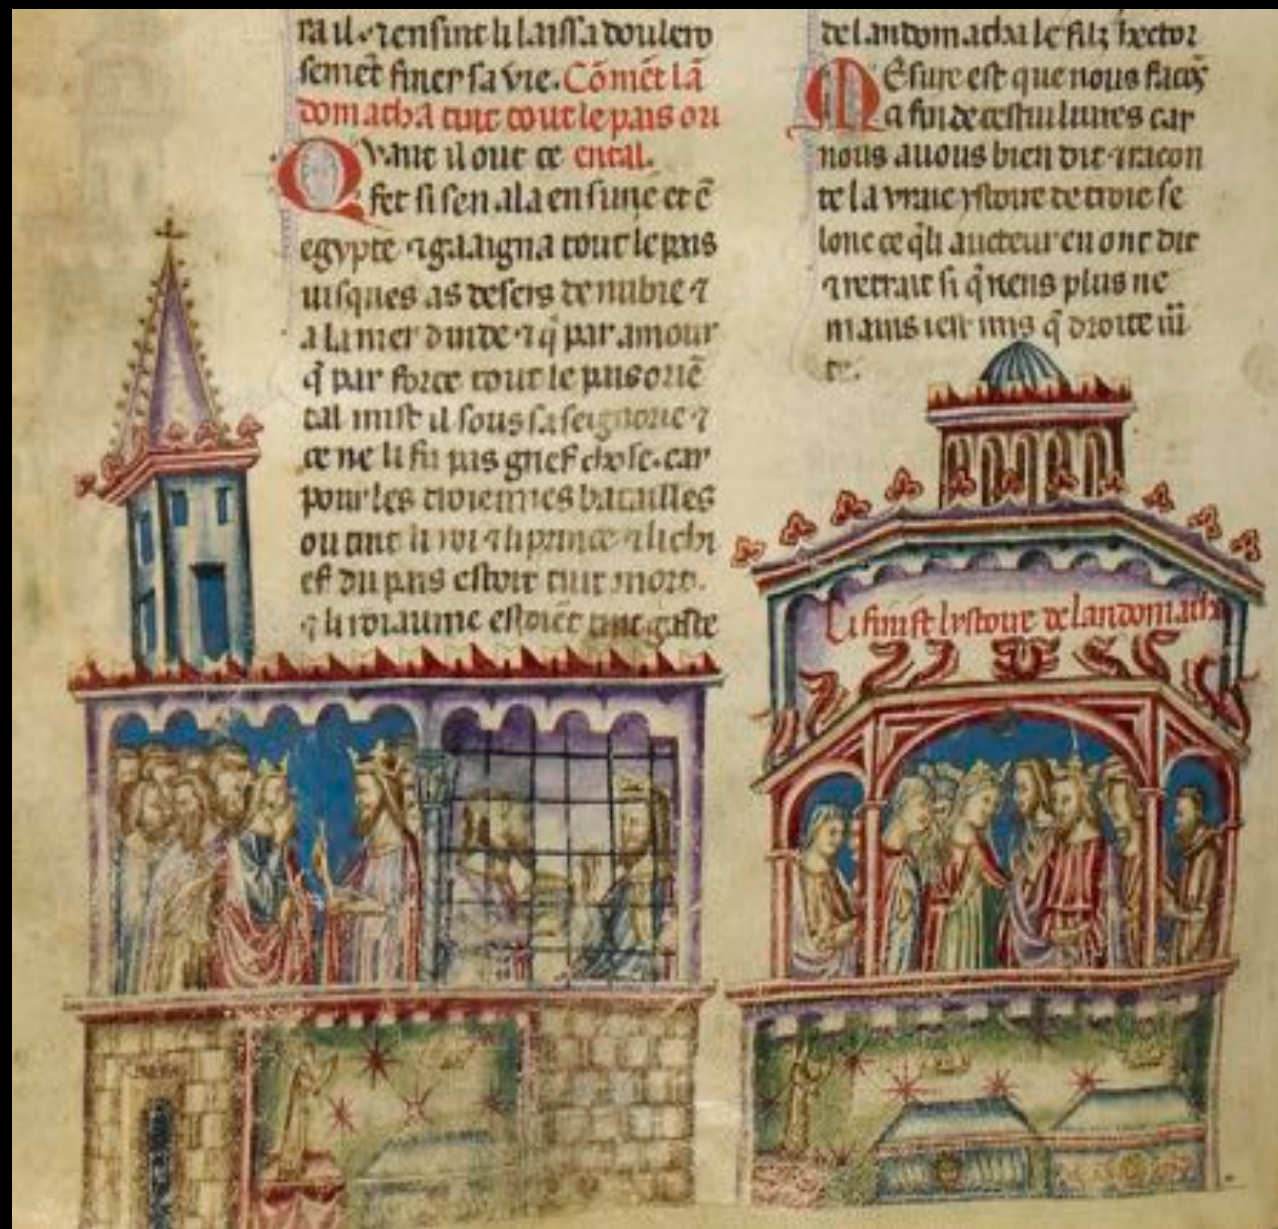 ra il · ⁊ ensint li laissa doulero
semēt finer sa vie. Cōmēt lā
domatha tint tout le pais ori
Quant il out ce ental.
fet si sen ala en surie et ē
egypte ⁊ gaaigna tout le pais
iusques as desers de nubie ⁊
a la mer dinde · ⁊ q̄ par amour
q̄ par force tout le pais oriē
tal mist il sous sa seignorie ⁊
ce ne li fu pas grief chose. car
pour les troiennes batailles
ou tant li roi ⁊ li prince ⁊ li chi
ef du pais estoit tuit mort.
⁊ li roiaume estoiēt tuit gaste
de landomatha le filz hector
Mesure est que nous faco᷒
a fin de cestui liures car
nous auons bien dit ⁊ racon
te la vraie ystoire de troie se
lonc ce q̄ li aucteur en ont dit
⁊ retrait si q̄ riens plus ne
mains ien mis q̄ droite
te.
Ci finist lystoire de landomatha